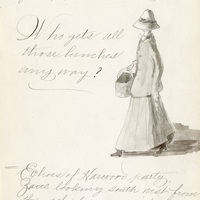 Who gets all
those lunches
any way?
Echoes of Harwood party,
Zave looking south west from